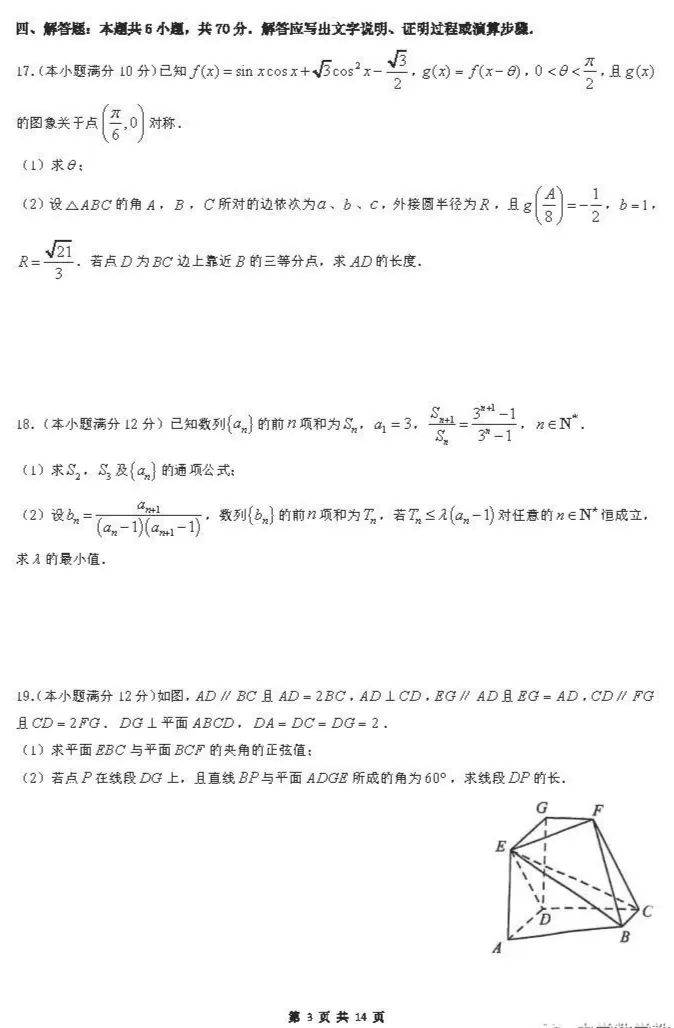 四、解答题：本题共6小题，共70分．解答应写出文字说明、证明过程或演算步骤．
17.(本小题满分10分)已知 f(x) = sin x cos x + √3 cos² x − √3/2，g(x) = f(x − θ)，0 < θ < π/2，且 g(x)
的图象关于点 (π/6, 0) 对称．
（1）求θ；
（2）设△ABC的角A，B，C所对的边依次为a、b、c，外接圆半径为R，且 g(A/8) = −1/2，b = 1，
R = √21/3．若点D为BC边上靠近B的三等分点，求AD的长度．
18.（本小题满分12分）已知数列{aₙ}的前n项和为Sₙ，a₁ = 3，Sₙ₊₁/Sₙ = (3ⁿ⁺¹ − 1)/(3ⁿ − 1)，n ∈ N*．
（1）求S₂，S₃及{aₙ}的通项公式；
（2）设bₙ = aₙ₊₁/((aₙ − 1)(aₙ₊₁ − 1))，数列{bₙ}的前n项和为Tₙ，若Tₙ ≤ λ(aₙ − 1)对任意的n ∈ N*恒成立，
求λ的最小值．
19.(本小题满分12分)如图，AD // BC 且 AD = 2BC，AD ⊥ CD，EG // AD 且 EG = AD，CD // FG
且CD = 2FG．DG ⊥ 平面ABCD，DA = DC = DG = 2．
（1）求平面EBC与平面BCF的夹角的正弦值；
（2）若点P在线段DG上，且直线BP与平面ADGE所成的角为60°，求线段DP的长．
G
F
E
D
C
B
A
第 3 页 共 14 页